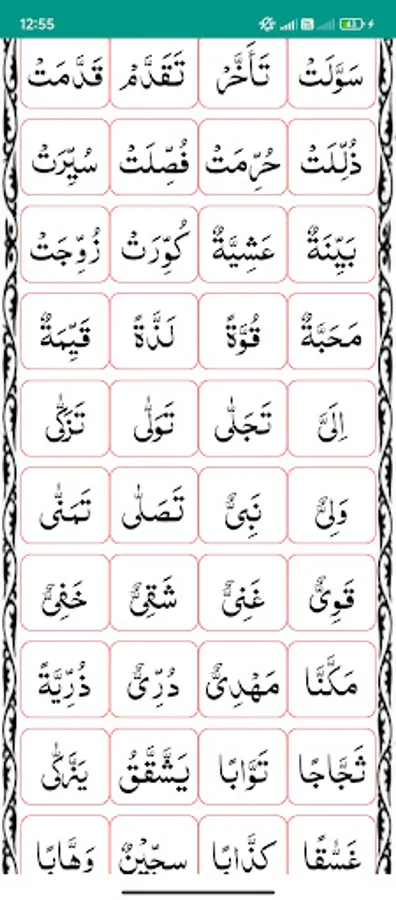 12:55
سَوَّلَتْ تَأَخَّرَ تَقَدَّمَ قَدَّمَتْ
ذُلِّلَتْ حُرِّمَتْ فُصِّلَتْ سُيِّرَتْ
بَيِّنَةٌ عَشِيَّةٌ كُوِّرَتْ زُوِّجَتْ
مَحَبَّةٌ قُوَّةً لَذَّةً قَيِّمَةٌ
اِلَىَّ تَجَلّٰى تَوَلّٰى تَزَكّٰى
وَلِىٌّ نَبِىٌّ تَصَلّٰى تَمَنّٰى
قَوِىٌّ غَنِىٌّ شَقِىٌّ خَفِىٌّ
مَكَّنَّا مَهْدِىٌّ دُرِّىٌّ ذُرِّيَّةً
ثَجَّاجًا تَوَّابًا يَشَّقَّقُ يَزَّكّٰى
غَسَّقًا كِذَّابًا سِجِّيْنٌ وَهَّابًا